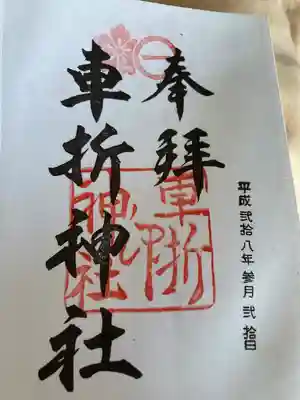 奉拝
平成弐拾八年参月弐拾日
車折神社
車折
神社